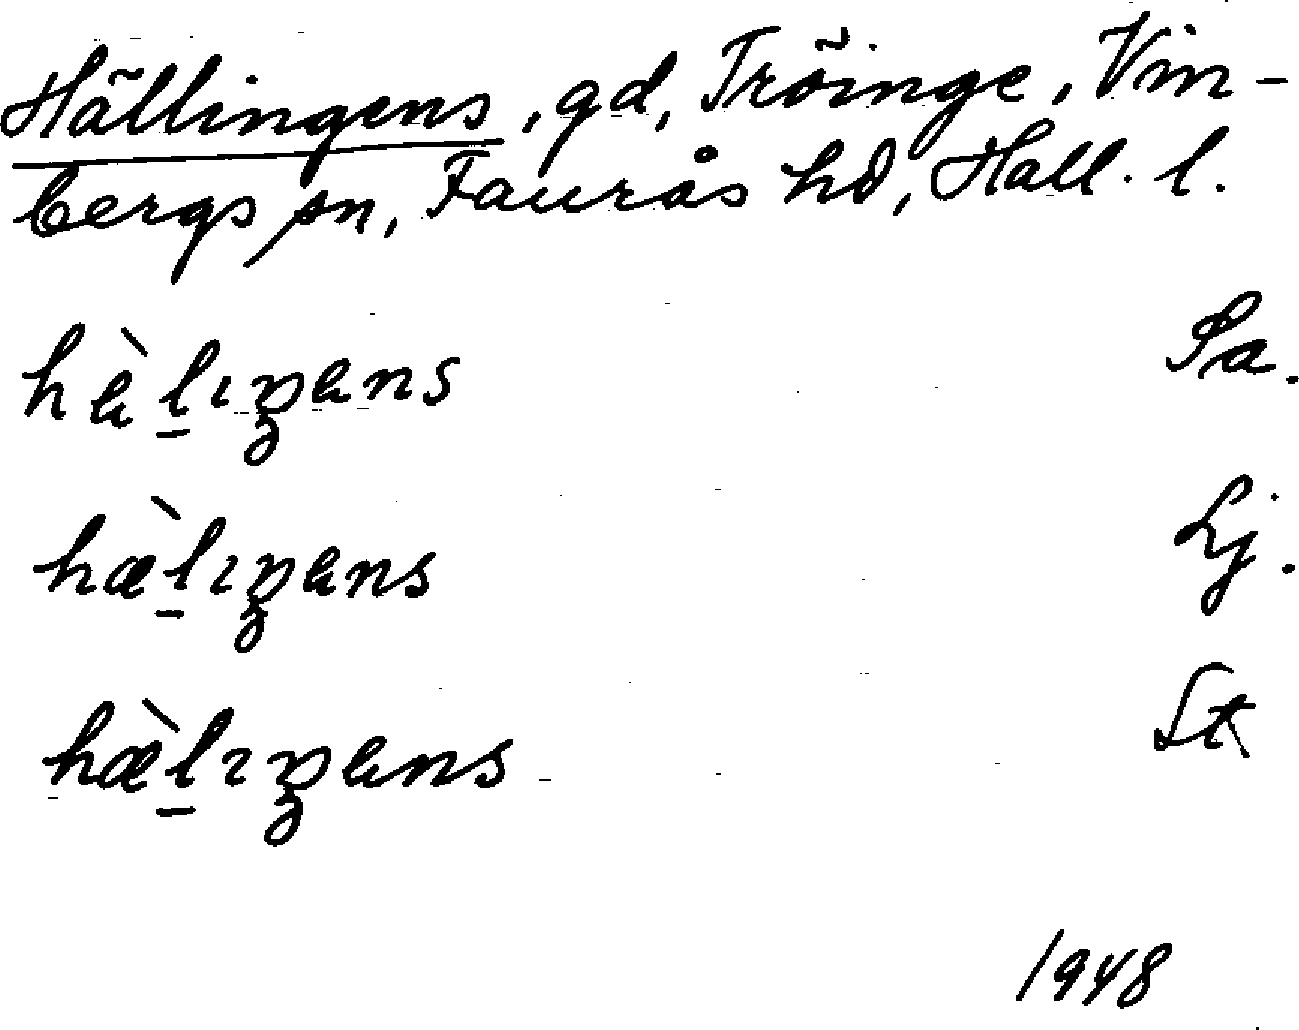 Hällingens, gd, Tröinge, Vin-
bergs sn, Faurås hd, Hall. l.
hàlıŋens Sa.
hæ̀lıŋens Lj.
hæ̀lıŋens St
1948